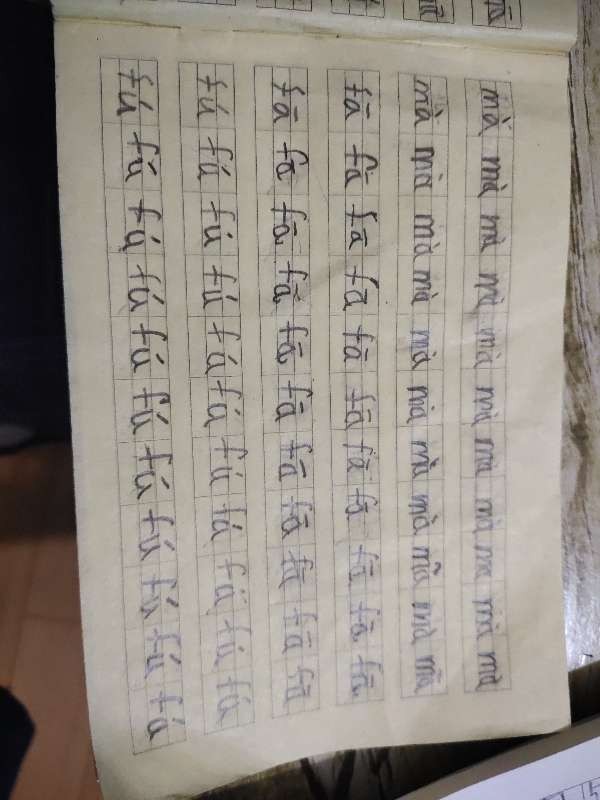 mà mà mà mà mà mà mà mà mà mà mà
mà mà mà mà mà mà mà mà mā mà mā
fā fā fā fā fā fā fā fā fā fā fā
fā fā fā fā fā fā fā fā fā fā fā
fú fú fú fú fú fú fú fú fú fú fú
fú fú fú fú fú fú fú fú fú fú fú